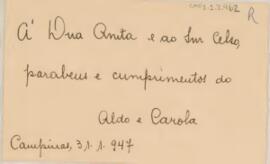 R
A' Dna Anita e ao Snr Celso,
parabens e cumprimentos do
Aldo e Carola
Campinas, 3,1.1.947